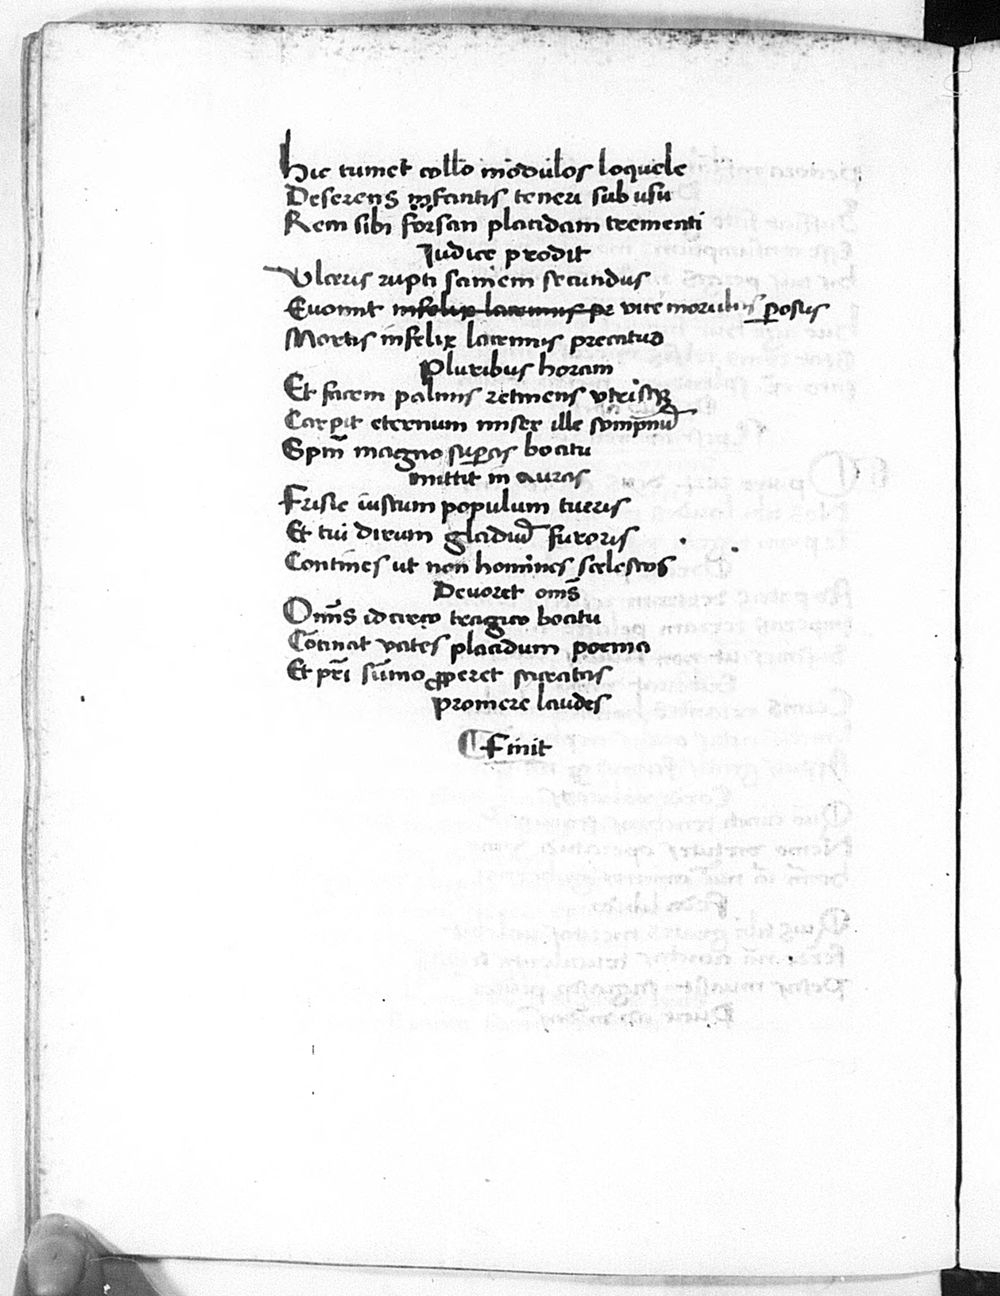 Hic tumet collo modulos loquele
Deserens infantis teneri sub usu
Rem sibi forsan placidam trementi
Judice prodit
Ulceris rupti saniem secundus
Evomit infelix laremus pr vite moribus posus
Mortis infelix laremus precatud
Pluribus horam
Et facem palmis retinens utrisque
Carpit eternum miser ille sompnu
Spm magno supas boatu
mittit in auras
Frisie iustum populum tueris
Et tui dirum gladiu furoris
Contines ut non homines scelestos
Devoret oms
Omis idcirco tragico boatu
Cotinat vates placidum poema
Et pri sumo pperet meatus
promere laudes
Finit